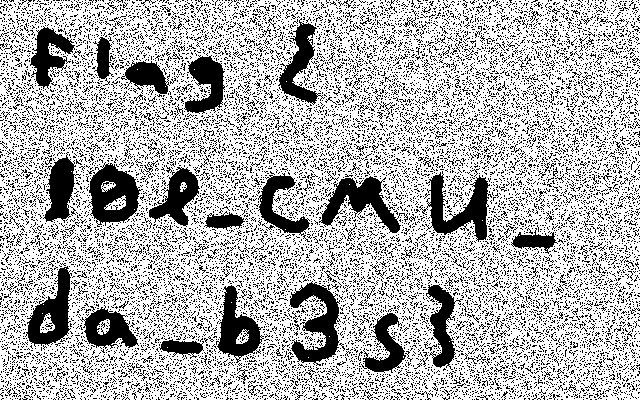 Flag {
l0l_CMU_
da_b3s}